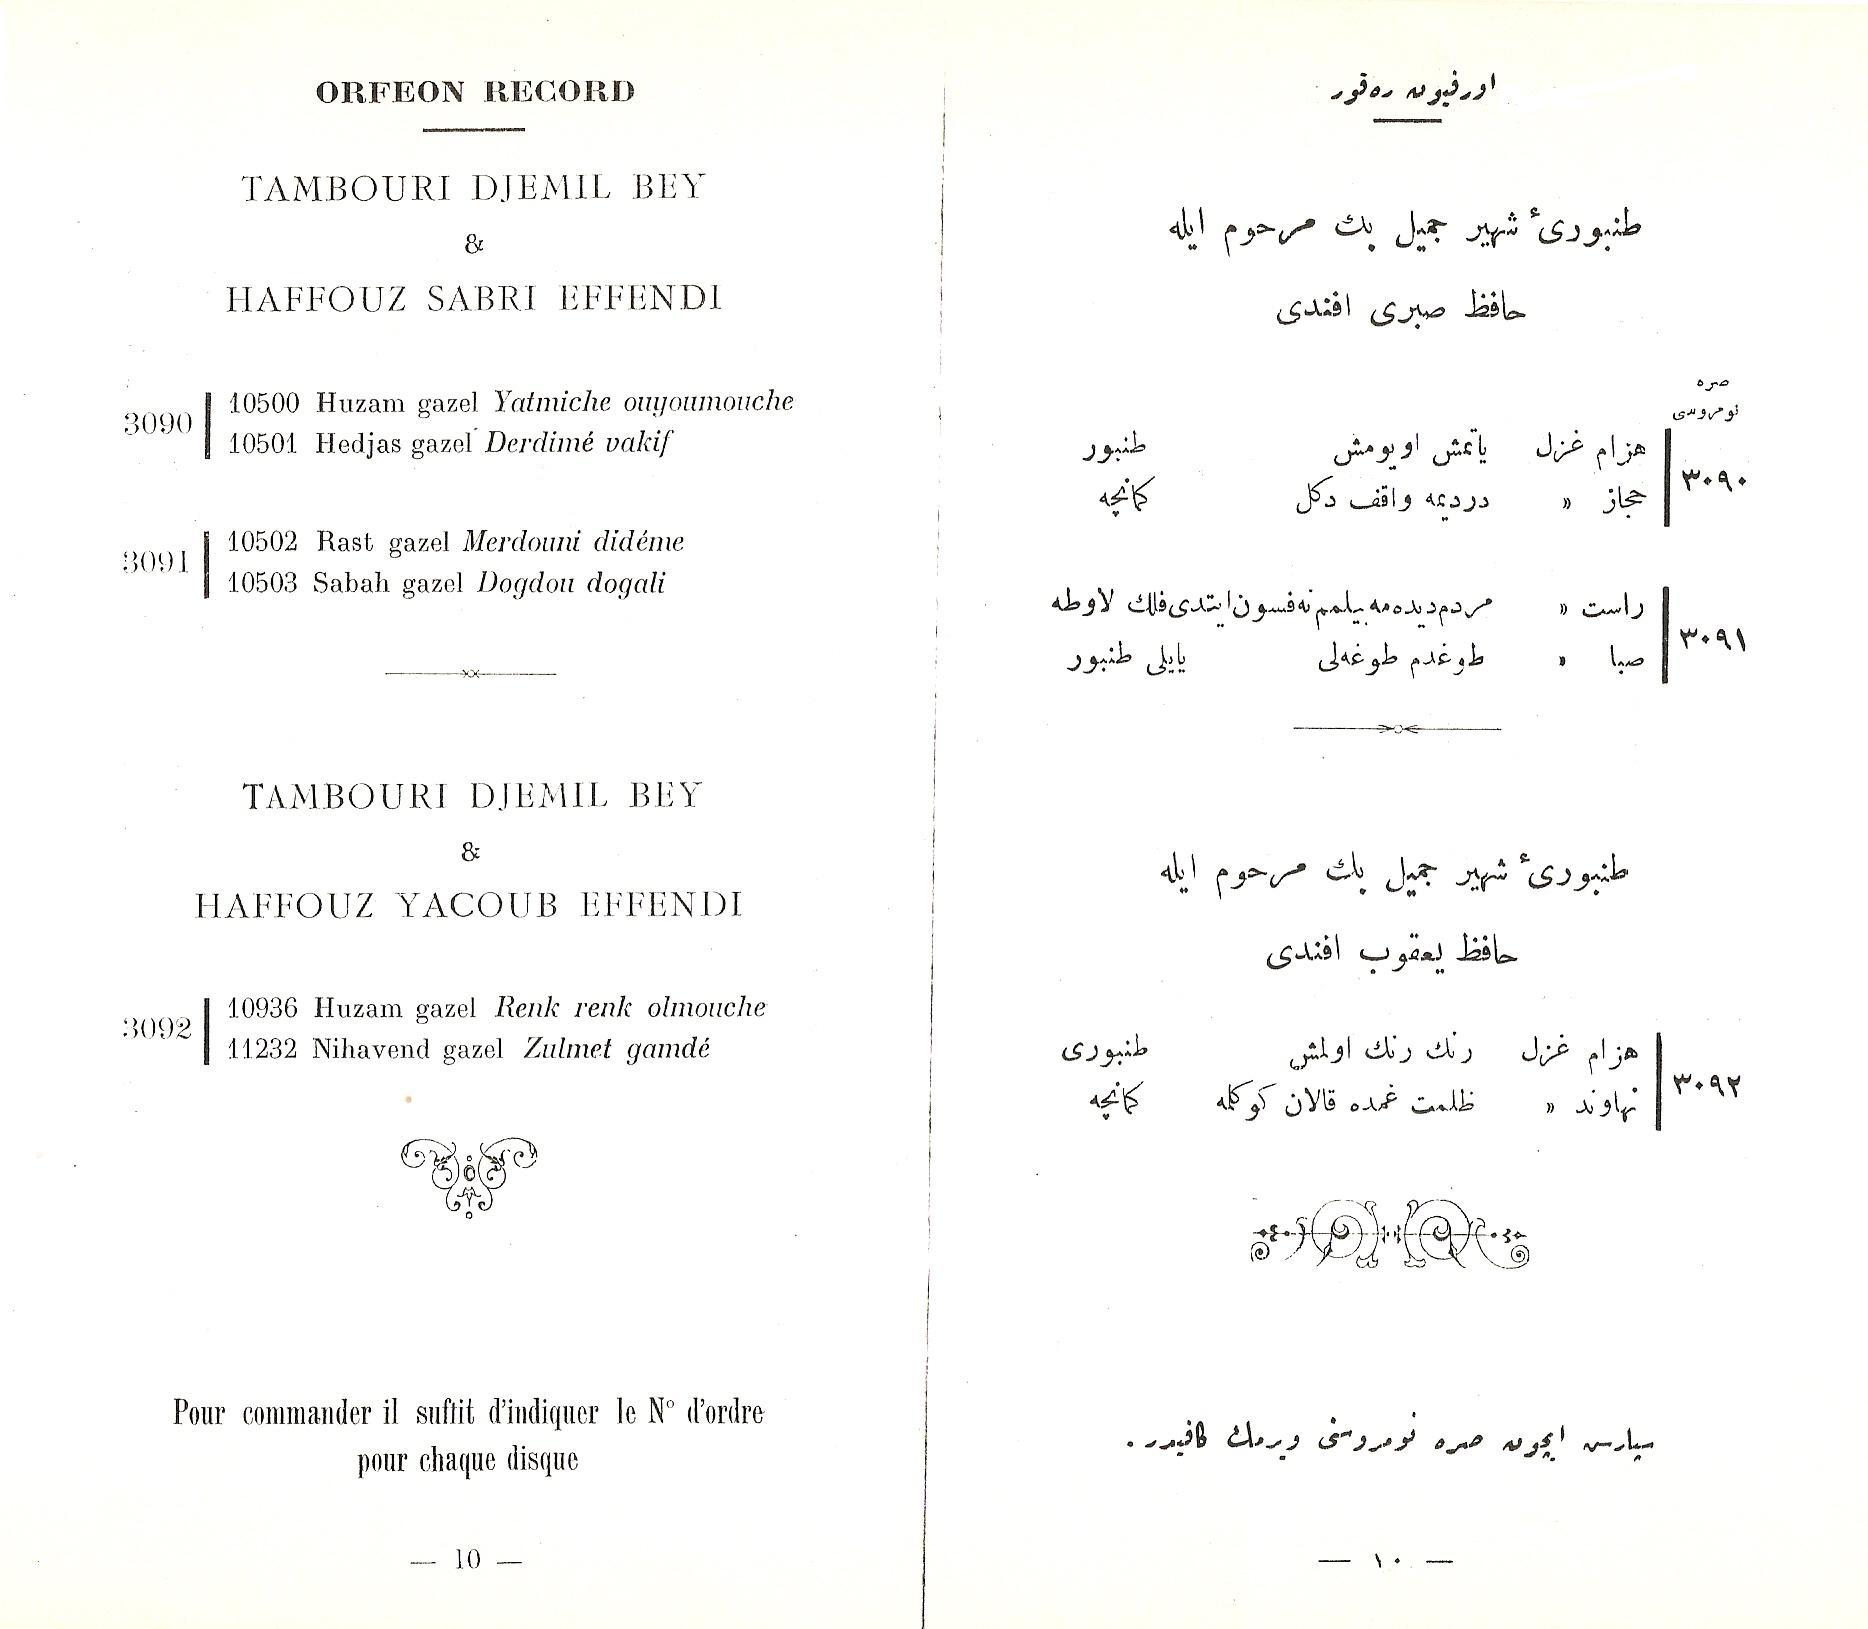 ORFEON RECORD
TAMBOURI DJEMIL BEY
&
HAFFOUZ SABRI EFFENDI
3090
10500 Huzam gazel Yatmiche ouyoumouche
10501 Hedjas gazel Derdimé vakif
3091
10502 Rast gazel Merdouni didéme
10503 Sabah gazel Dogdou dogali
TAMBOURI DJEMIL BEY
&
HAFFOUZ YACOUB EFFENDI
3092
10936 Huzam gazel Renk renk olmouche
11232 Nihavend gazel Zulmet gamdé
Pour commander il suffit d'indiquer le N° d'ordre
pour chaque disque
— 10 —
اورفيون ره‌قور
طنبورىٔ شهير جميل بك مرحوم ايله
حافظ صبرى افندى
صره
نومروسى
٣٠٩٠
هزام غزل ياتمش اويومش طنبور
حجاز » درديمه واقف دكل كمانچه
٣٠٩١
راست » مردم ديده‌مه بيلمم نه فسون ايتدى فلك لاوطه
صبا » طوغدم طوغه‌لى يايلى طنبور
طنبورىٔ شهير جميل بك مرحوم ايله
حافظ يعقوب افندى
٣٠٩٢
هزام غزل رنك رنك اولمش طنبورى
نهاوند » ظلمت غمده قالان كوكلمه كمانچه
سپارش ايچون صره نومروسنى ويرمك كافيدر.
— ١٠ —